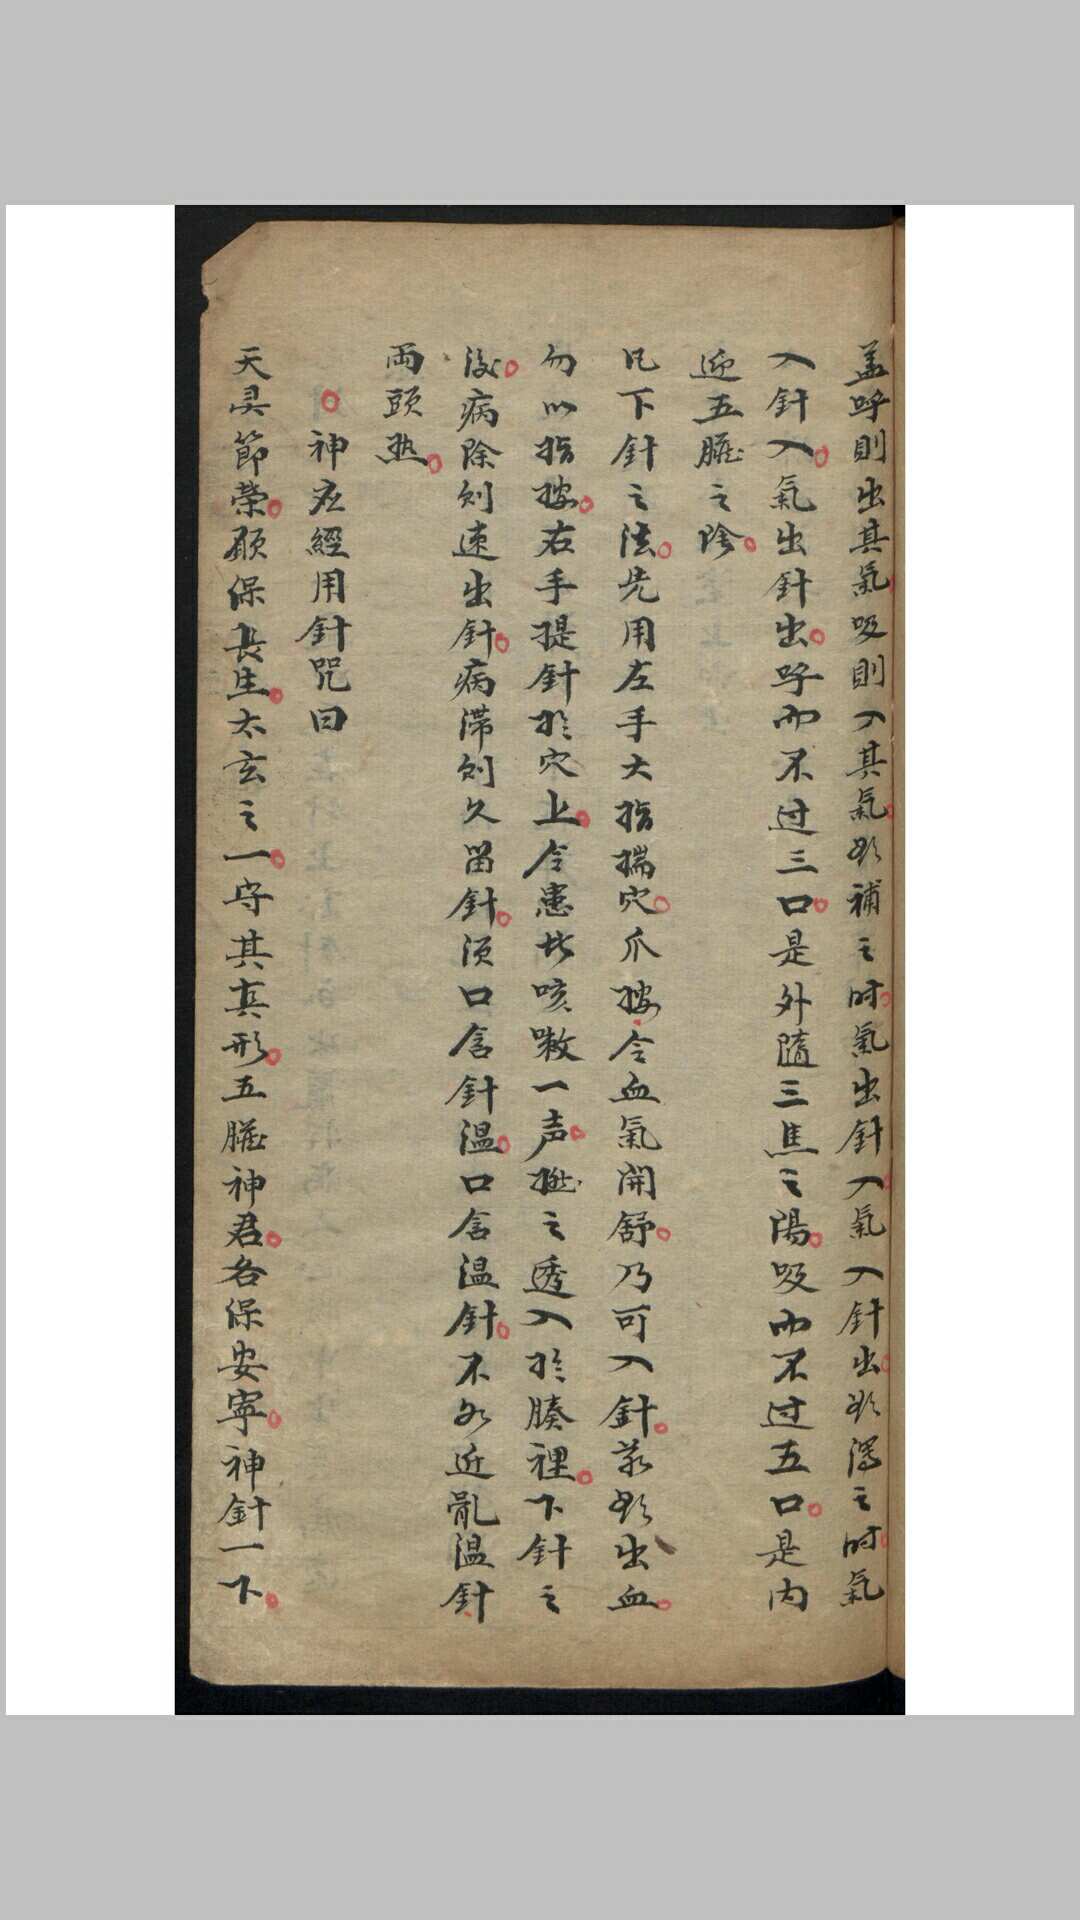 盖呼則出其氣吸則入其氣欲補之时氣出針入氣入針出欲瀉之时氣
入針入氣出針出呼而不过三口是外隨三焦之陽吸而不过五口是内
迎五臟之陰
凡下針之法先用左手大指揣穴爪按令血氣開舒乃可入針若欲出血
勿以指按右手提針於穴上令患者咳嗽一声捻之透入於腠裡下針之
後病除則速出針病滞則久留針須口含針温口含温針不必近亂温針
兩頭热
神应經用針咒曰
天灵節榮願保長生太玄之一守其真形五臟神君各保安寧神針一下